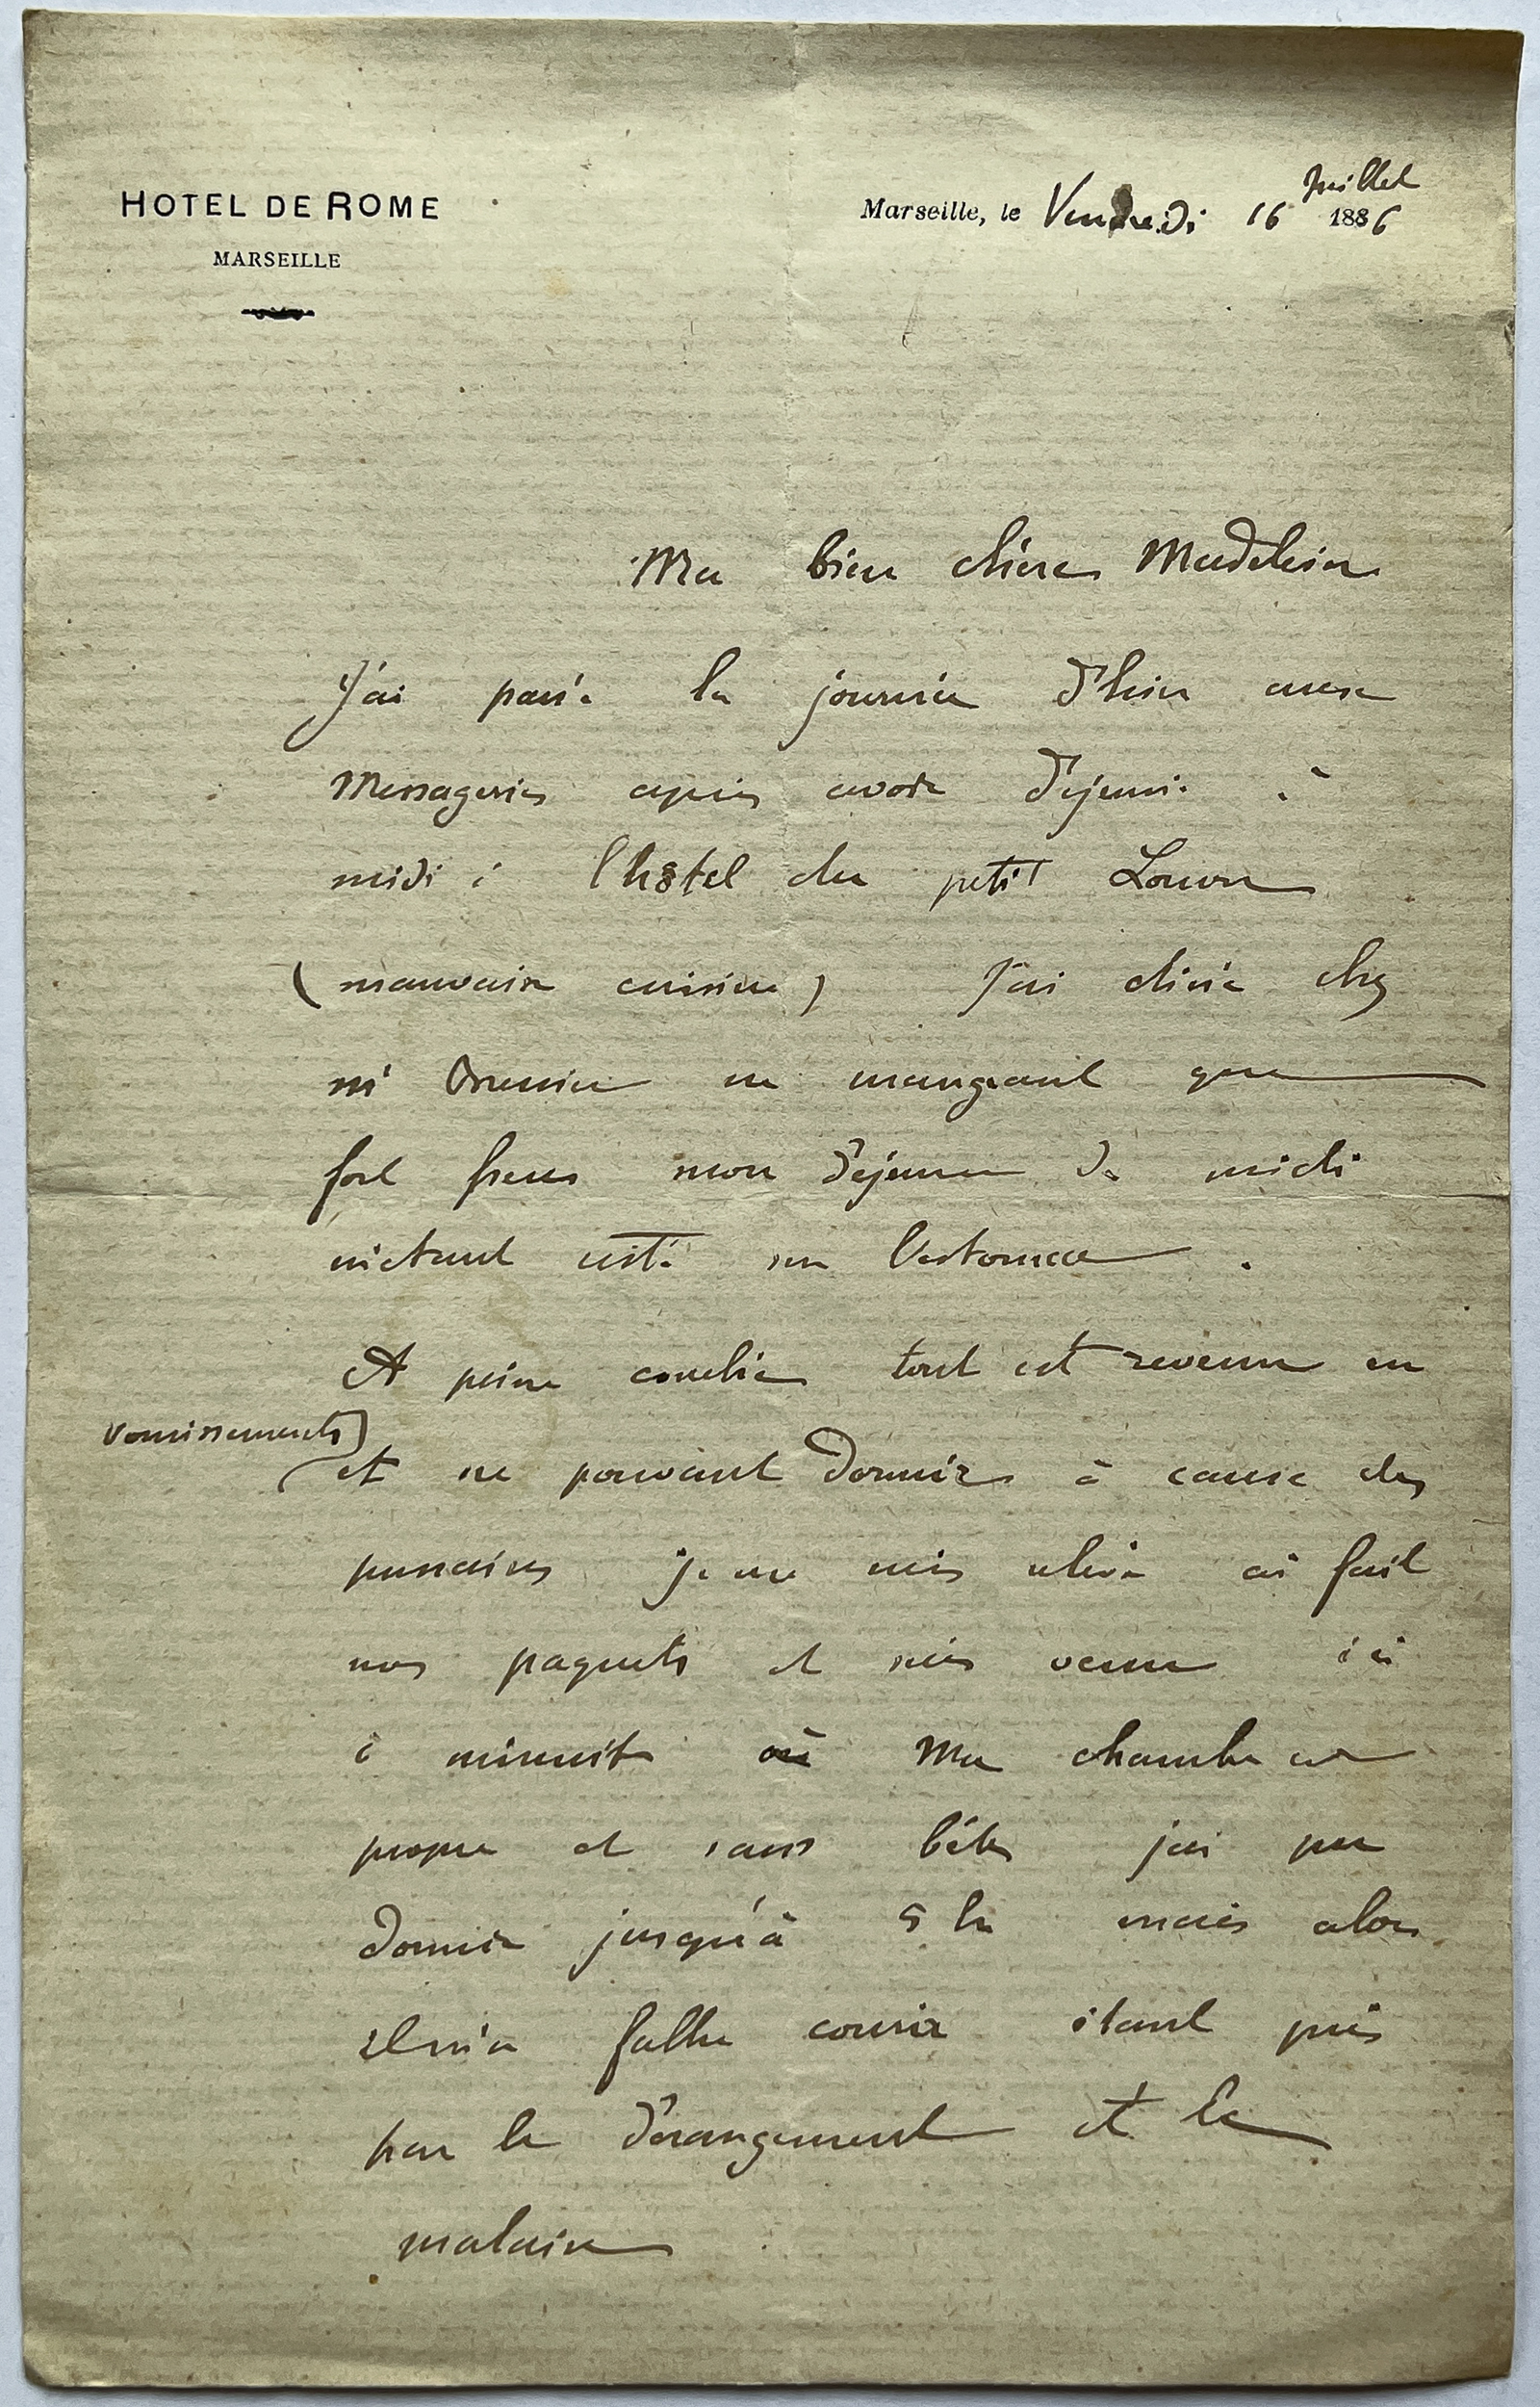 HOTEL DE ROME
MARSEILLE
Marseille, le Vendredi 16 Juillet 1886
Ma bien chère Madeleine
J'ai passé la journée d'hier aux
Messageries après avoir déjeuné à
midi à l'hôtel du petit Louvre
(mauvaise cuisine) J'ai diné chez
ne mangeant que
fort peu mon déjeuner de midi
m'étant resté sur l'estomac.
A peine couché tout est revenu en
vomissements
et ne pouvant dormir à cause des
punaises je me suis relevé ai fait
mes paquets et suis venu ici
à minuit où Ma chambre est
propre et sans bêtes j'ai pu
dormir jusqu'à 5 h mais alors
il m'a fallu courir étant pris
par le dérangement et le
malaise